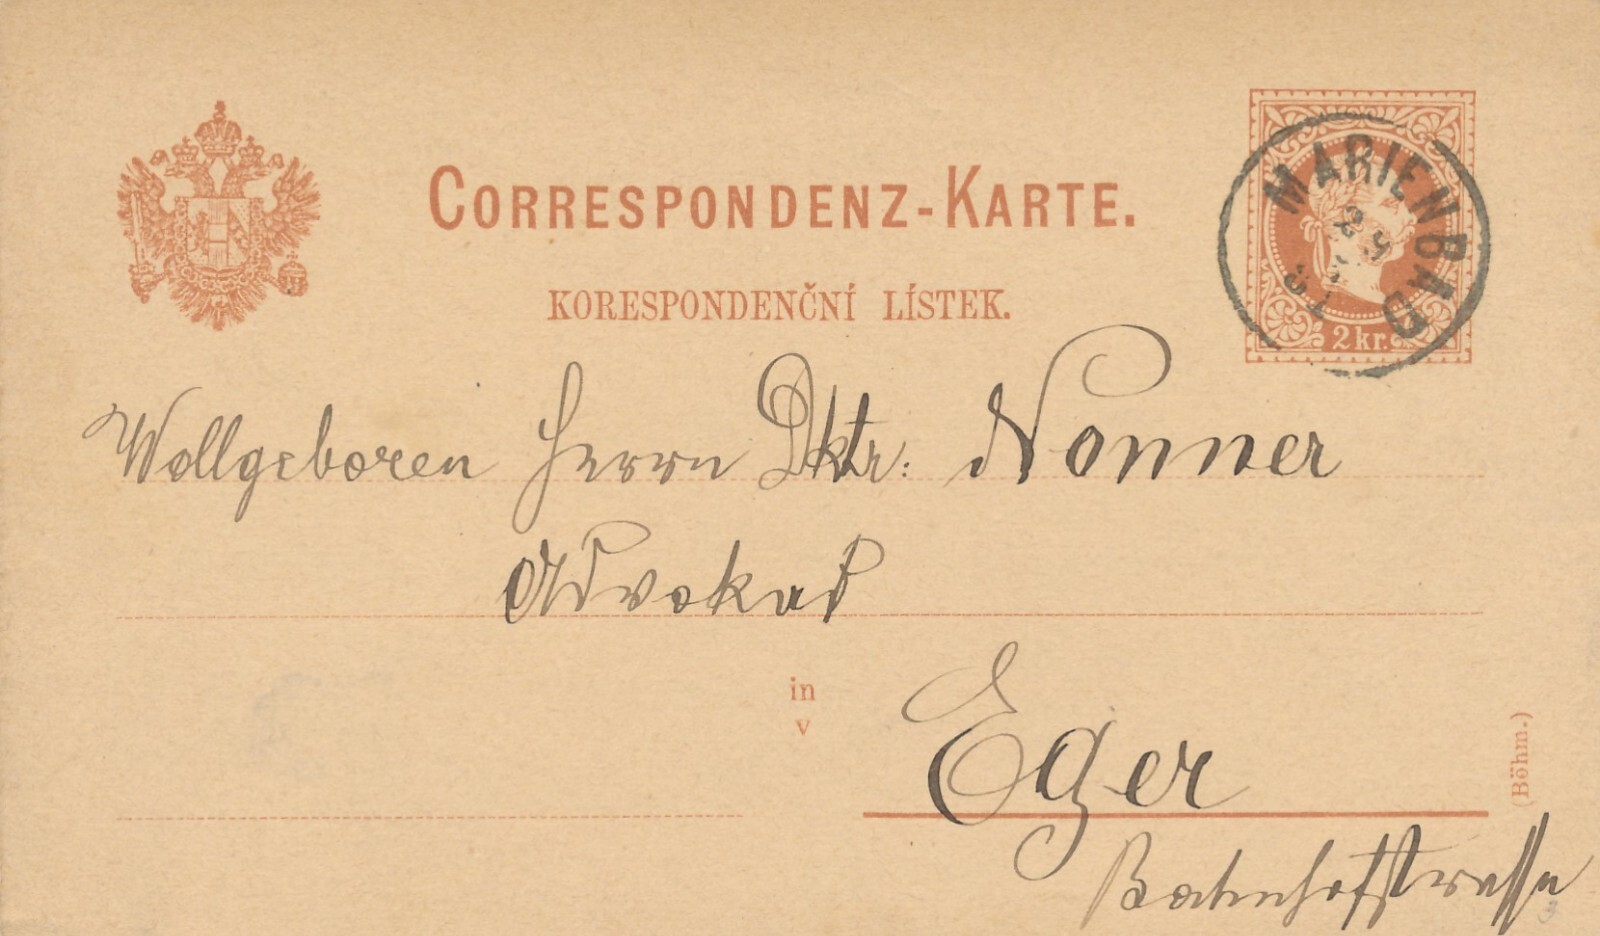 CORRESPONDENZ-KARTE.
KORESPONDENČNÍ LÍSTEK.
2 kr.
MARIENBAD
Wollgeboren Herrn Dktr: Nonner
Advokat
in
v
Eger
(Böhm.)
Bahnhofstrasse